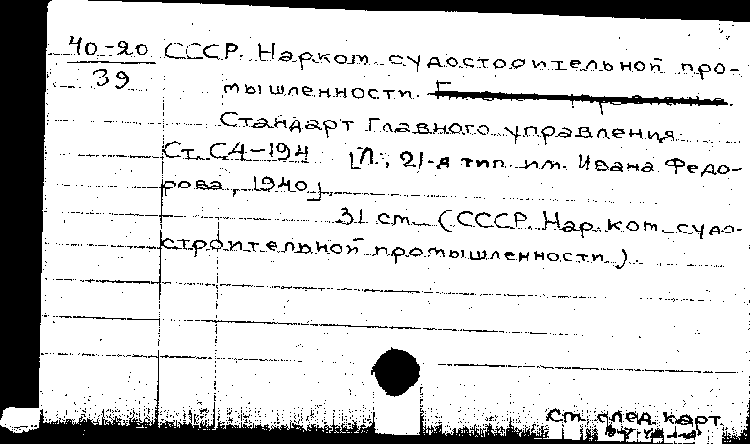 40-20 СССР. Нарком. судостроительной про-
39
мышленности.
Стандарт Главного управления
Ст. С4-194 [Л., 21-я тип. им. Ивана Федо-
рова, 1940].
31 ст. (СССР. Нар. ком. судо-
строительной промышленности).
Ст. след. карт.